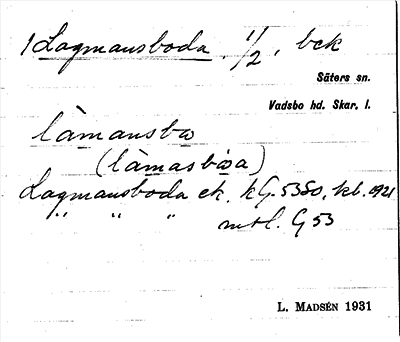 1 Lagmansboda. 1/2, bck
Säters sn.
Vadsbo hd. Skar. l.
làmansbω
(làmasbωa)
Lagmansboda ek. kG. 53 SO, kb. 1921
" " " mtl. G 53
L. MADSÉN 1931